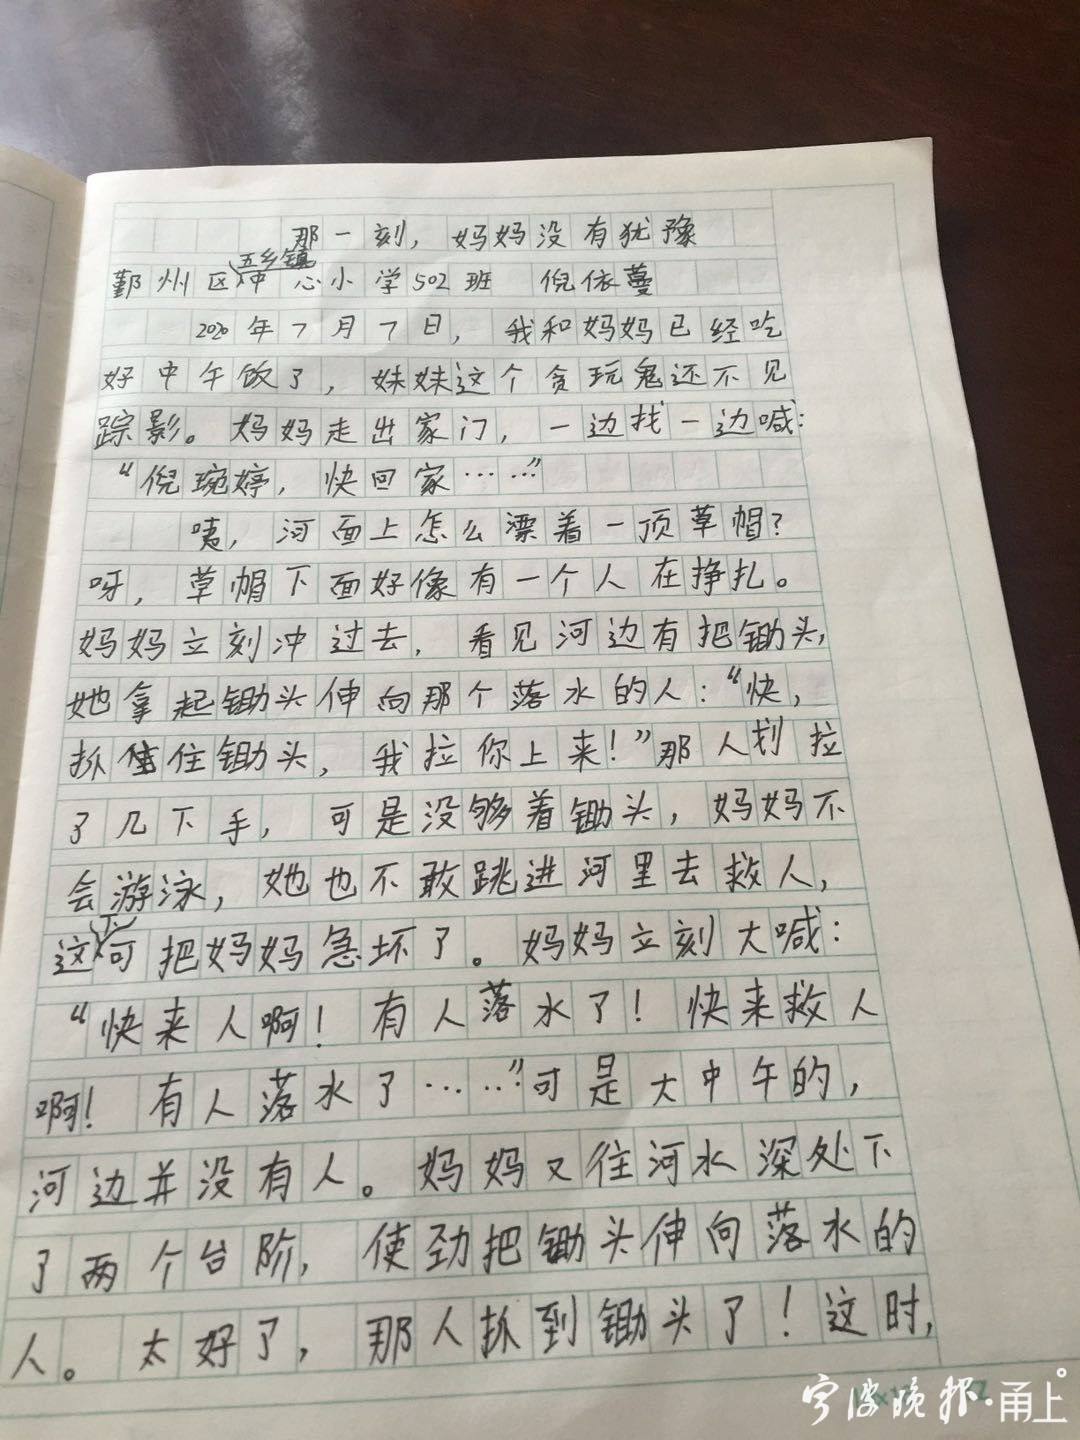 那一刻，妈妈没有犹豫
鄞州区五乡镇中心小学502班 倪依蔓
2020年7月7日，我和妈妈已经吃
好中午饭了，妹妹这个贪玩鬼还不见
踪影。妈妈走出家门，一边找一边喊：
“倪琬婷，快回家……”
咦，河面上怎么漂着一顶草帽？
呀，草帽下面好像有一个人在挣扎。
妈妈立刻冲过去，看见河边有把锄头，
她拿起锄头伸向那个落水的人：“快，
抓住锄头，我拉你上来！”那人划拉
了几下手，可是没够着锄头，妈妈不
会游泳，她也不敢跳进河里去救人，
这下可把妈妈急坏了。妈妈立刻大喊：
“快来人啊！有人落水了！快来救人
啊！有人落水了……”可是大中午的，
河边并没有人。妈妈又往河水深处下
了两个台阶，使劲把锄头伸向落水的
人。太好了，那人抓到锄头了！这时，
宁波晚报·甬上